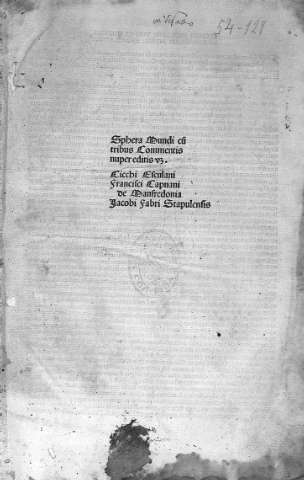 54-121
Sphera Mundi cũ
tribus Commentis
nuper editis vʒ.
Cicchi Esculani
Francisci Capuani
de Manfredonia
Jacobi Fabri Stapulensis